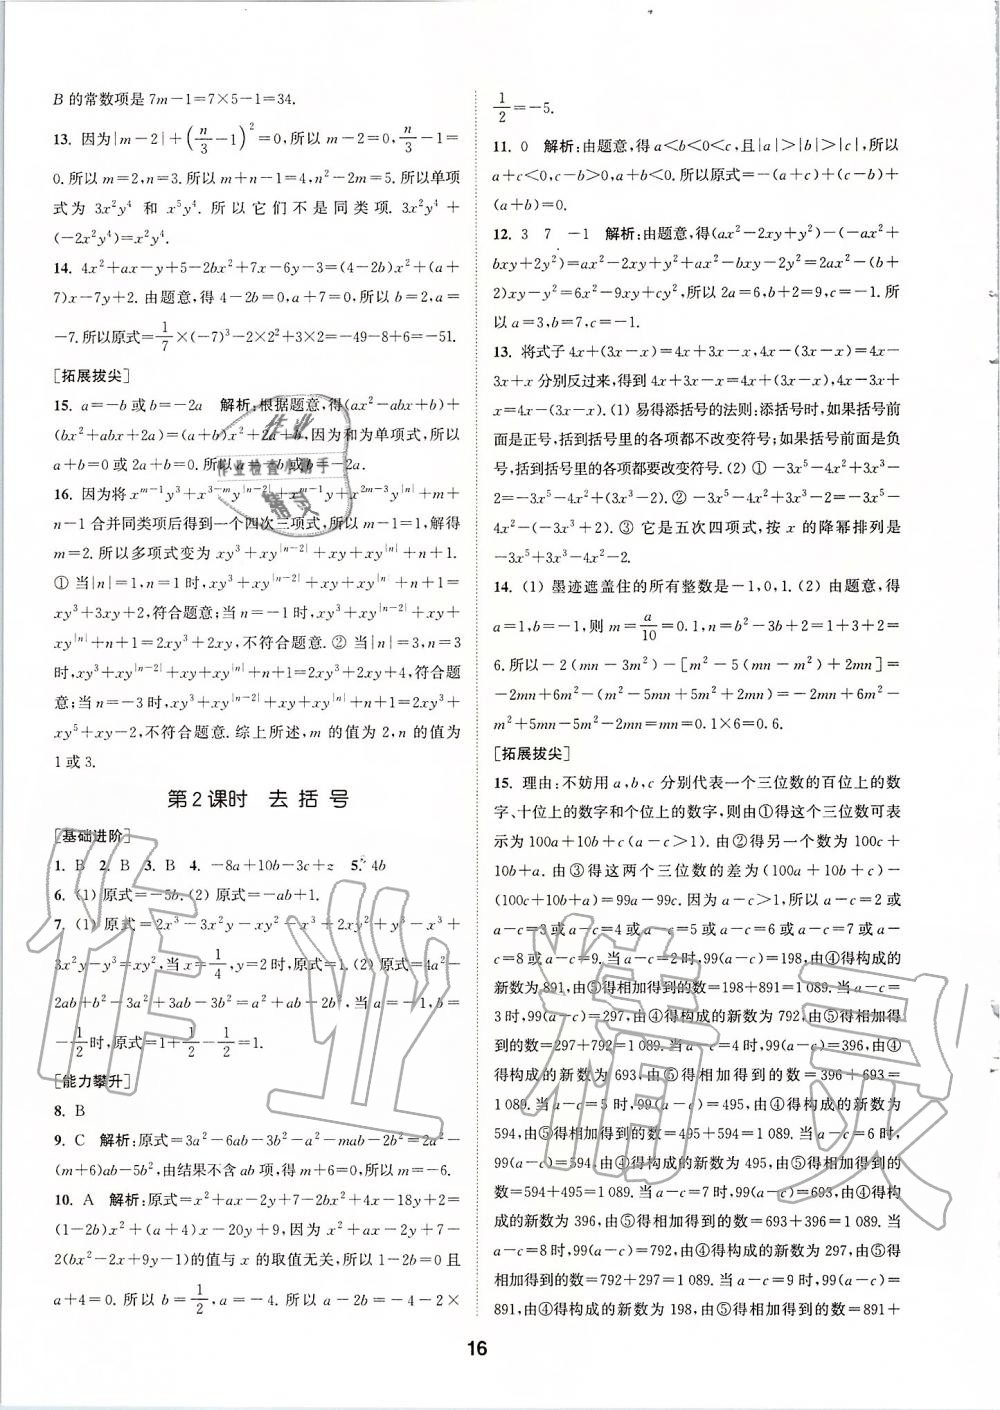 B 的常数项是 7m－1＝7×5－1＝34.
13. 因为|m－2|＋(n/3－1)²＝0,所以 m－2＝0,n/3－1＝
0.所以 m＝2,n＝3.所以 m＋n－1＝4,n²－2m＝5.所以单项
式为 3x²y⁴ 和 x⁵y⁴. 所以它们不是同类项. 3x²y⁴＋
(－2x²y⁴)＝x²y⁴.
14. 4x²＋ax－y＋5－2bx²＋7x－6y－3＝(4－2b)x²＋(a＋
7)x－7y＋2. 由题意,得 4－2b＝0,a＋7＝0,所以 b＝2,a＝
－7.所以原式＝1/7×(－7)³－2×2²＋3×2＝－49－8＋6＝－51.
[拓展拔尖]
15. a＝－b 或 b＝－2a 解析:根据题意,得(ax²－abx＋b)＋
(bx²＋abx＋2a)＝(a＋b)x²＋2a＋b,因为和为单项式,所以
a＋b＝0 或 2a＋b＝0. 所以 a＝－b 或 b＝－2a.
16. 因为将 xᵐ⁻¹y³＋x³⁻ᵐy^|n－2|＋xᵐ⁻¹y＋x²ᵐ⁻³y^|n|＋m＋
n－1 合并同类项后得到一个四次三项式,所以 m－1＝1,解得
m＝2. 所以多项式变为 xy³＋xy^|n－2|＋xy＋xy^|n|＋n＋1.
① 当|n|＝1,n＝1 时,xy³＋xy^|n－2|＋xy＋xy^|n|＋n＋1＝
xy³＋3xy＋2,符合题意;当 n＝－1 时,xy³＋xy^|n－2|＋xy＋
xy^|n|＋n＋1＝2xy³＋2xy,不符合题意.② 当|n|＝3,n＝3
时,xy³＋xy^|n－2|＋xy＋xy^|n|＋n＋1＝2xy³＋2xy＋4,符合题
意;当 n＝－3 时,xy³＋xy^|n－2|＋xy＋xy^|n|＋n＋1＝2xy³＋
xy⁵＋xy－2,不符合题意. 综上所述,m 的值为 2,n 的值为
1 或 3.
第2课时 去括号
[基础进阶]
1. B 2. B 3. B 4. －8a＋10b－3c＋z 5. 4b
6. (1) 原式＝－5b. (2) 原式＝－ab＋1.
7. (1) 原式＝2x³－3x²y－xy²－x³＋2xy²＋y³－x³＋
3x²y－y³＝xy²,当 x＝1/4,y＝2时,原式＝1. (2) 原式＝4a²－
2ab＋b²－3a²＋3ab－3b²＝a²＋ab－2b²,当 a＝－1,b＝
－1/2时,原式＝1＋1/2－1/2＝1.
[能力攀升]
8. B
9. C 解析:原式＝3a²－6ab－3b²－a²－mab－2b²＝2a²－
(m＋6)ab－5b²,由结果不含 ab 项,得 m＋6＝0,所以 m＝－6.
10. A 解析:原式＝x²＋ax－2y＋7－2bx²＋4x－18y＋2＝
(1－2b)x²＋(a＋4)x－20y＋9,因为 x²＋ax－2y＋7－
2(bx²－2x＋9y－1)的值与 x 的取值无关,所以 1－2b＝0 且
a＋4＝0. 所以 b＝1/2,a＝－4. 所以 a－2b＝－4－2×
1/2＝－5.
11. 0 解析:由题意,得 a＜b＜0＜c,且|a|＞|b|＞|c|,所以
a＋c＜0,c－b＞0,a＋b＜0. 所以原式＝－(a＋c)＋(c－b)＋
(a＋b)＝0.
12. 3 7 －1 解析:由题意,得(ax²－2xy＋y²)－(－ax²＋
bxy＋2y²)＝ax²－2xy＋y²＋ax²－bxy－2y²＝2ax²－(b＋
2)xy－y²＝6x²－9xy＋cy²,所以 2a＝6,b＋2＝9,c＝－1. 所
以 a＝3,b＝7,c＝－1.
13. 将式子 4x＋(3x－x)＝4x＋3x－x,4x－(3x－x)＝4x－
3x＋x 分别反过来,得到 4x＋3x－x＝4x＋(3x－x),4x－3x＋
x＝4x－(3x－x). (1) 易得添括号的法则:添括号时,如果括号前
面是正号,括到括号里的各项都不改变符号;如果括号前面是负
号,括到括号里的各项都要改变符号. (2) ① －3x⁵－4x²＋3x³－
2＝－3x⁵－4x²＋(3x³－2). ② －3x⁵－4x²＋3x³－2＝－3x⁵－
4x²－(－3x³＋2). ③ 它是五次四项式,按 x 的降幂排列是
－3x⁵＋3x³－4x²－2.
14. (1) 墨迹遮盖住的所有整数是－1,0,1. (2) 由题意,得
a＝1,b＝－1,则 m＝a/10＝0.1,n＝b²－3b＋2＝1＋3＋2＝
6.所以－2(mn－3m²)－[m²－5(mn－m²)＋2mn]＝
－2mn＋6m²－(m²－5mn＋5m²＋2mn)＝－2mn＋6m²－
m²＋5mn－5m²－2mn＝mn＝0.1×6＝0.6.
[拓展拔尖]
15. 理由:不妨用 a,b,c 分别代表一个三位数的百位上的数
字、十位上的数字和个位上的数字,则由①得这个三位数可表
示为 100a＋10b＋c(a－c＞1). 由②得另一个数为 100c＋
10b＋a. 由③得这两个三位数的差为(100a＋10b＋c)－
(100c＋10b＋a)＝99a－99c. 因为 a－c＞1,所以 a－c＝2 或
a－c＝3或 a－c＝4或 a－c＝5或 a－c＝6或 a－c＝7或 a－
c＝8或 a－c＝9. 当 a－c＝2时,99(a－c)＝198,由④得构成的
新数为 891,由⑤得相加得到的数＝198＋891＝1 089. 当 a－c＝
3 时,99(a－c)＝297,由④得构成的新数为 792,由⑤得相加得
到的数＝297＋792＝1 089. 当 a－c＝4 时,99(a－c)＝396,由④
得构成的新数为 693,由⑤得相加得到的数＝396＋693＝
1 089. 当 a－c＝5 时,99(a－c)＝495,由④得构成的新数为
594,由⑤得相加得到的数＝495＋594＝1 089. 当 a－c＝6 时,
99(a－c)＝594,由④得构成的新数为 495,由⑤得相加得到的数＝
594＋495＝1 089. 当 a－c＝7 时,99(a－c)＝693,由④得构
成的新数为 396,由⑤得相加得到的数＝693＋396＝1 089. 当
a－c＝8 时,99(a－c)＝792,由④得构成的新数为 297,由⑤得
相加得到的数＝792＋297＝1 089. 当 a－c＝9 时,99(a－c)＝
891,由④得构成的新数为 198,由⑤得相加得到的数＝891＋
16
作业
作业检查小助手
精灵
作业精灵